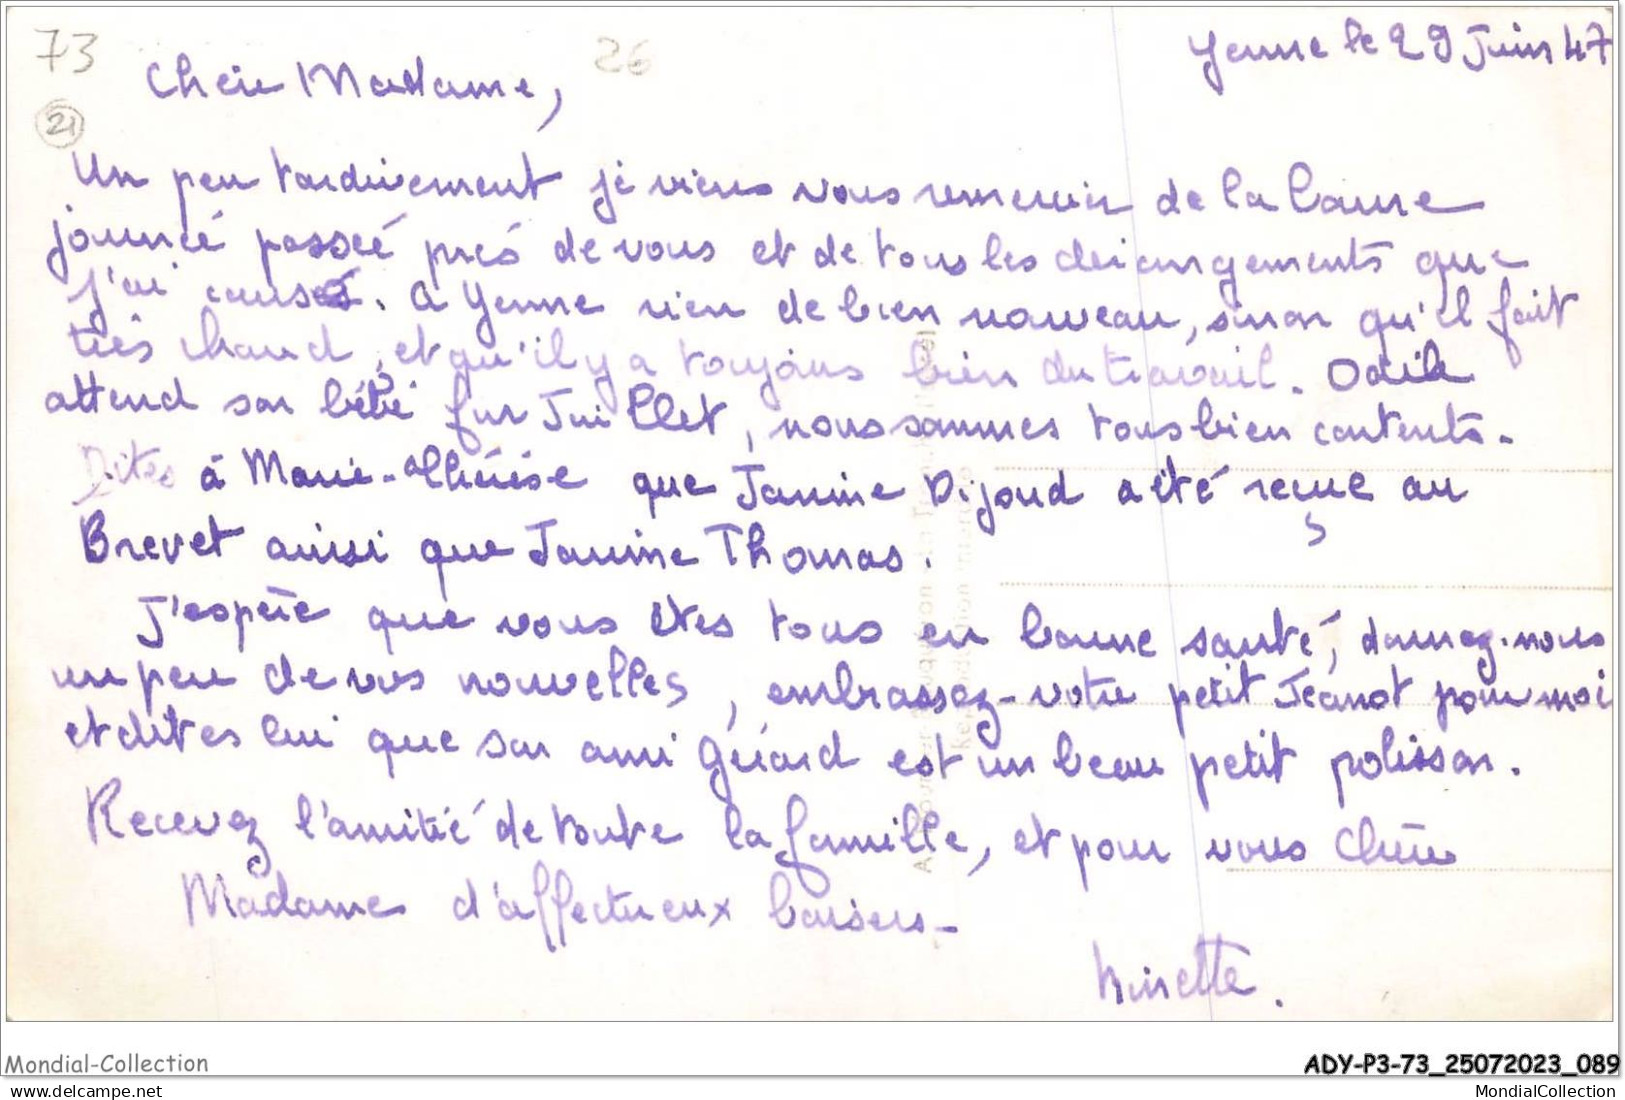 73
26
Yenne le 29 Juin 47
Chère Madame,
21
Un peu tardivement je viens vous remercier de la bonne
journée passée près de vous et de tous les dérangements que
j'ai causé. A Yenne rien de bien nouveau, sinon qu'il fait
très chaud, et qu'il y a toujours bien du travail. Odile
attend son bébé fin Juillet, nous sommes tous bien contents.
Dites à Marie-Thérèse que Janine Dijoud a été reçue au
Brevet ainsi que Janine Thomas.
J'espère que vous êtes tous en bonne santé, donnez-nous
un peu de vos nouvelles, embrassez-votre petit Jeanot pour moi
et dites lui que son ami Gérard est un beau petit polisson.
Recevez l'amitié de toute la famille, et pour vous Chère
Madame d'affectueux baisers-
Ninette.
Mondial-Collection
ADY-P3-73_25072023_089
www.delcampe.net
MondialCollection